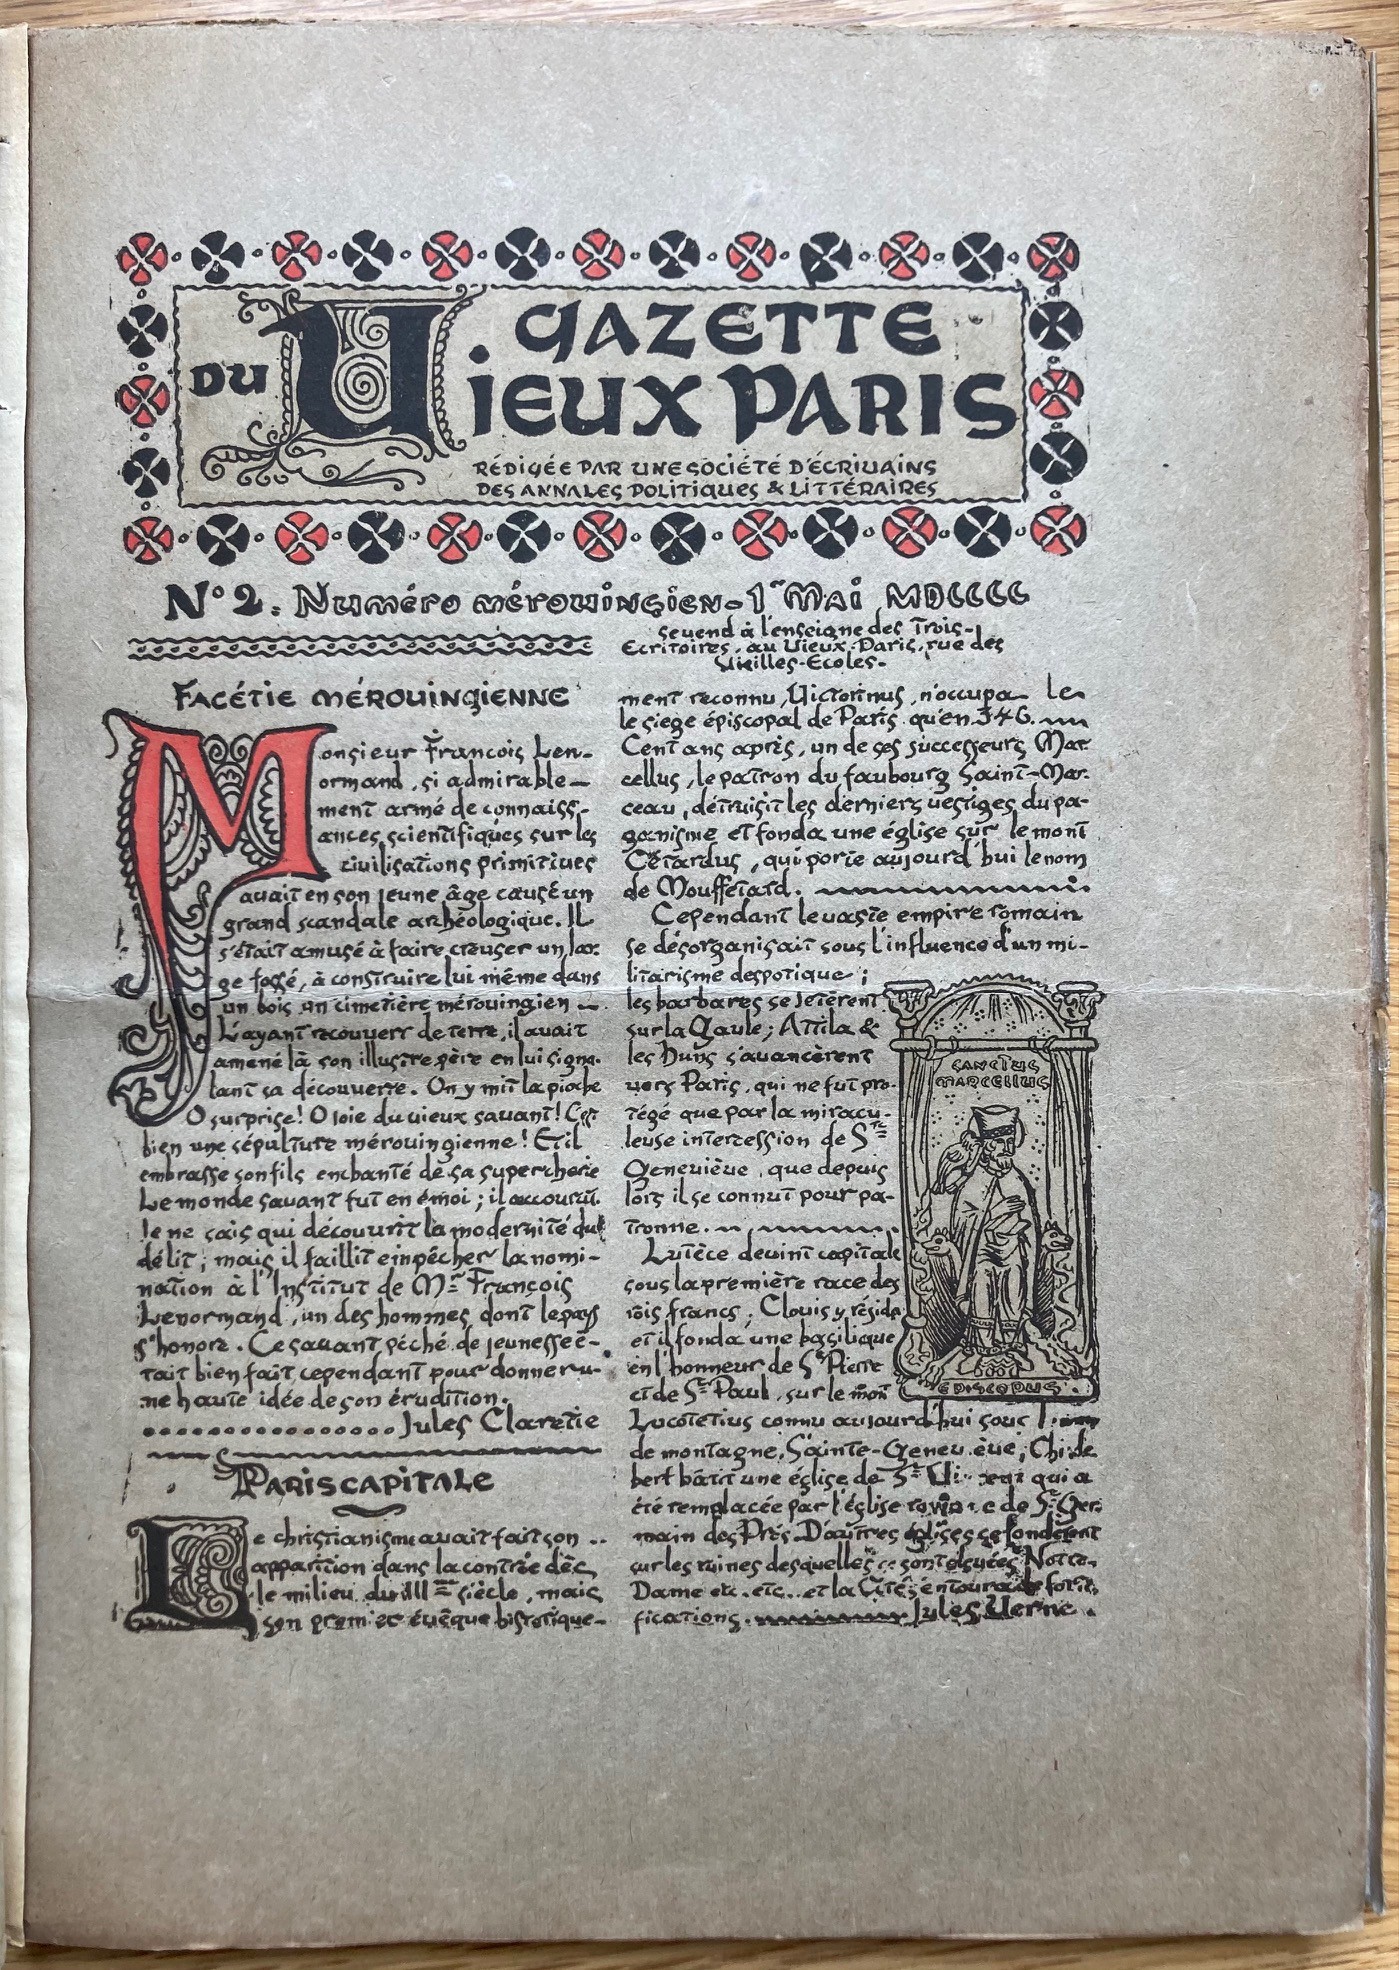 GAZETTE
DU Vieux PARIS
RÉDIGÉE PAR UNE SOCIÉTÉ D'ÉCRIVAINS
DES ANNALES POLITIQUES & LITTÉRAIRES
N° 2. Numéro mérovingien - 1er Mai MDCCCC
se vend à l'enseigne des Trois-
Ecritoires, au Vieux-Paris, rue des
Vieilles-Ecoles.
FACÉTIE MÉROVINGIENNE
Monsieur François Len-
ormand, si admirable-
ment armé de connaiss-
ances scientifiques sur les
civilisations primitives
avait en son jeune âge causé un
grand scandale archéologique. IL
s'était amusé à faire creuser un lar-
ge fossé, à construire lui même dans
un bois un cimetière mérovingien
L'ayant recouvert de terre, il avait
amené là son illustre père en lui signa-
lant sa découverte. On y mit la pioche
O surprise! O joie du vieux savant! C'est
bien une sépulture mérovingienne! Et il
embrasse son fils enchanté de sa supercherie
Le monde savant fut en émoi; il accourut.
Je ne sais qui découvrit la modernité du
délit; mais il faillit empêcher la nomi-
nation à l'Institut de Mr François
Lenormand, un des hommes dont le pays
s'honore. Ce savant péché de jeunesse é-
tait bien fait cependant pour donner u-
ne haute idée de son érudition.
Jules Claretie
PARIS CAPITALE
Le christianisme avait fait son
apparition dans la contrée dès
le milieu du III me siècle, mais
son premier évêque historique-
ment reconnu, Victorinus, n'occupa le
le siege épiscopal de Paris qu'en 346.
Cent ans après, un de ses successeurs Mar-
cellus, le patron du faubourg Saint-Mar-
ceau, détruisit les derniers vestiges du pa-
ganisme et fonda une église sur le mont
Cétardus, qui porte aujourd'hui le nom
de Mouffetard.
Cependant le vaste empire romain
se désorganisait sous l'influence d'un mi-
litarisme despotique;
les barbares se jetèrent
sur la Gaule; Attila &
les Huns s'avancèrent
vers Paris, qui ne fut pro-
tégé que par la miracu-
leuse intercession de Ste
Geneviève, que depuis
lors il se connut pour pa-
tronne.
Lutèce devint capitale
sous la première race des
rois francs; Clovis y résida
et il fonda une basilique
en l'honneur de St Pierre
et de St Paul, sur le mont
Lucotetius connu aujourd'hui sous
de montagne Sainte-Geneviève; Childe
bert bâtit une église de St qui a
été remplacée par l'église romane de St Ger-
main des Prés. D'autres églises se fondèrent
sur les ruines desquelles se sont élevées Notre-
Dame etc. etc.. et la Cité s'entoura de forti-
fications. Jules Verne.
SANCTUS
MARCELLUS
EPISCOPUS